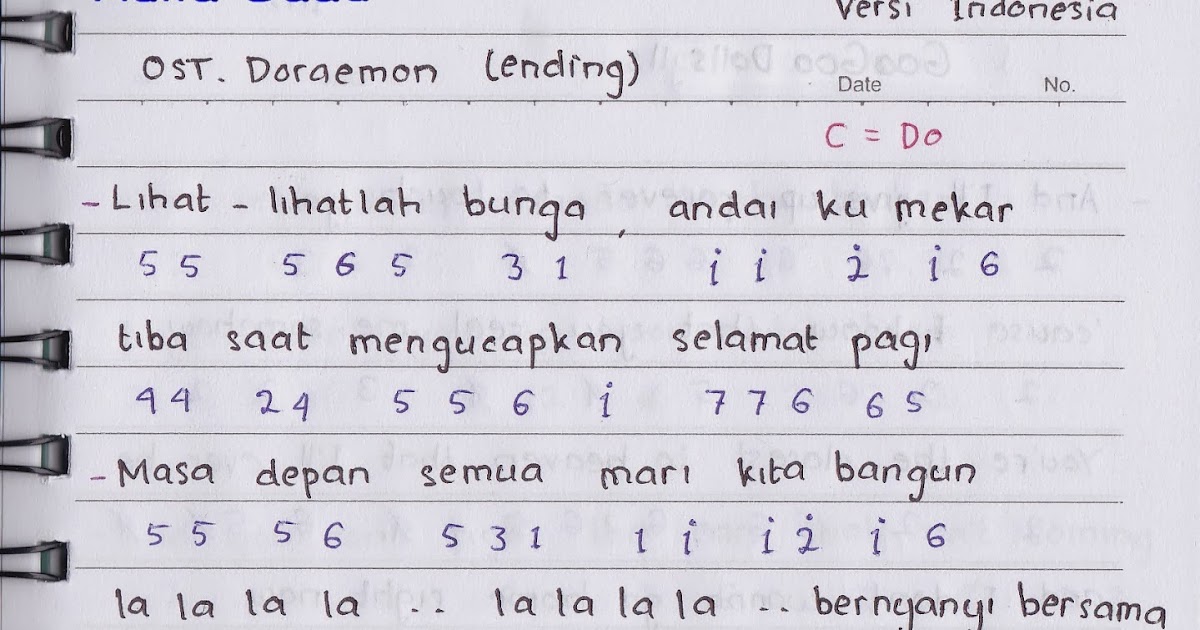 Versi Indonesia
OST. Doraemon (ending)
Date No.
C = Do
- Lihat - lihatlah bunga, andai ku mekar
5 5 5 6 5 3 1 i i 2̇ i 6
tiba saat mengucapkan selamat pagi
4 4 2 4 5 5 6 i 7 7 6 6 5
- Masa depan semua mari kita bangun
5 5 5 6 5 3 1 1 i i 2̇ i 6
la la la la .. la la la la .. bernyanyi bersama